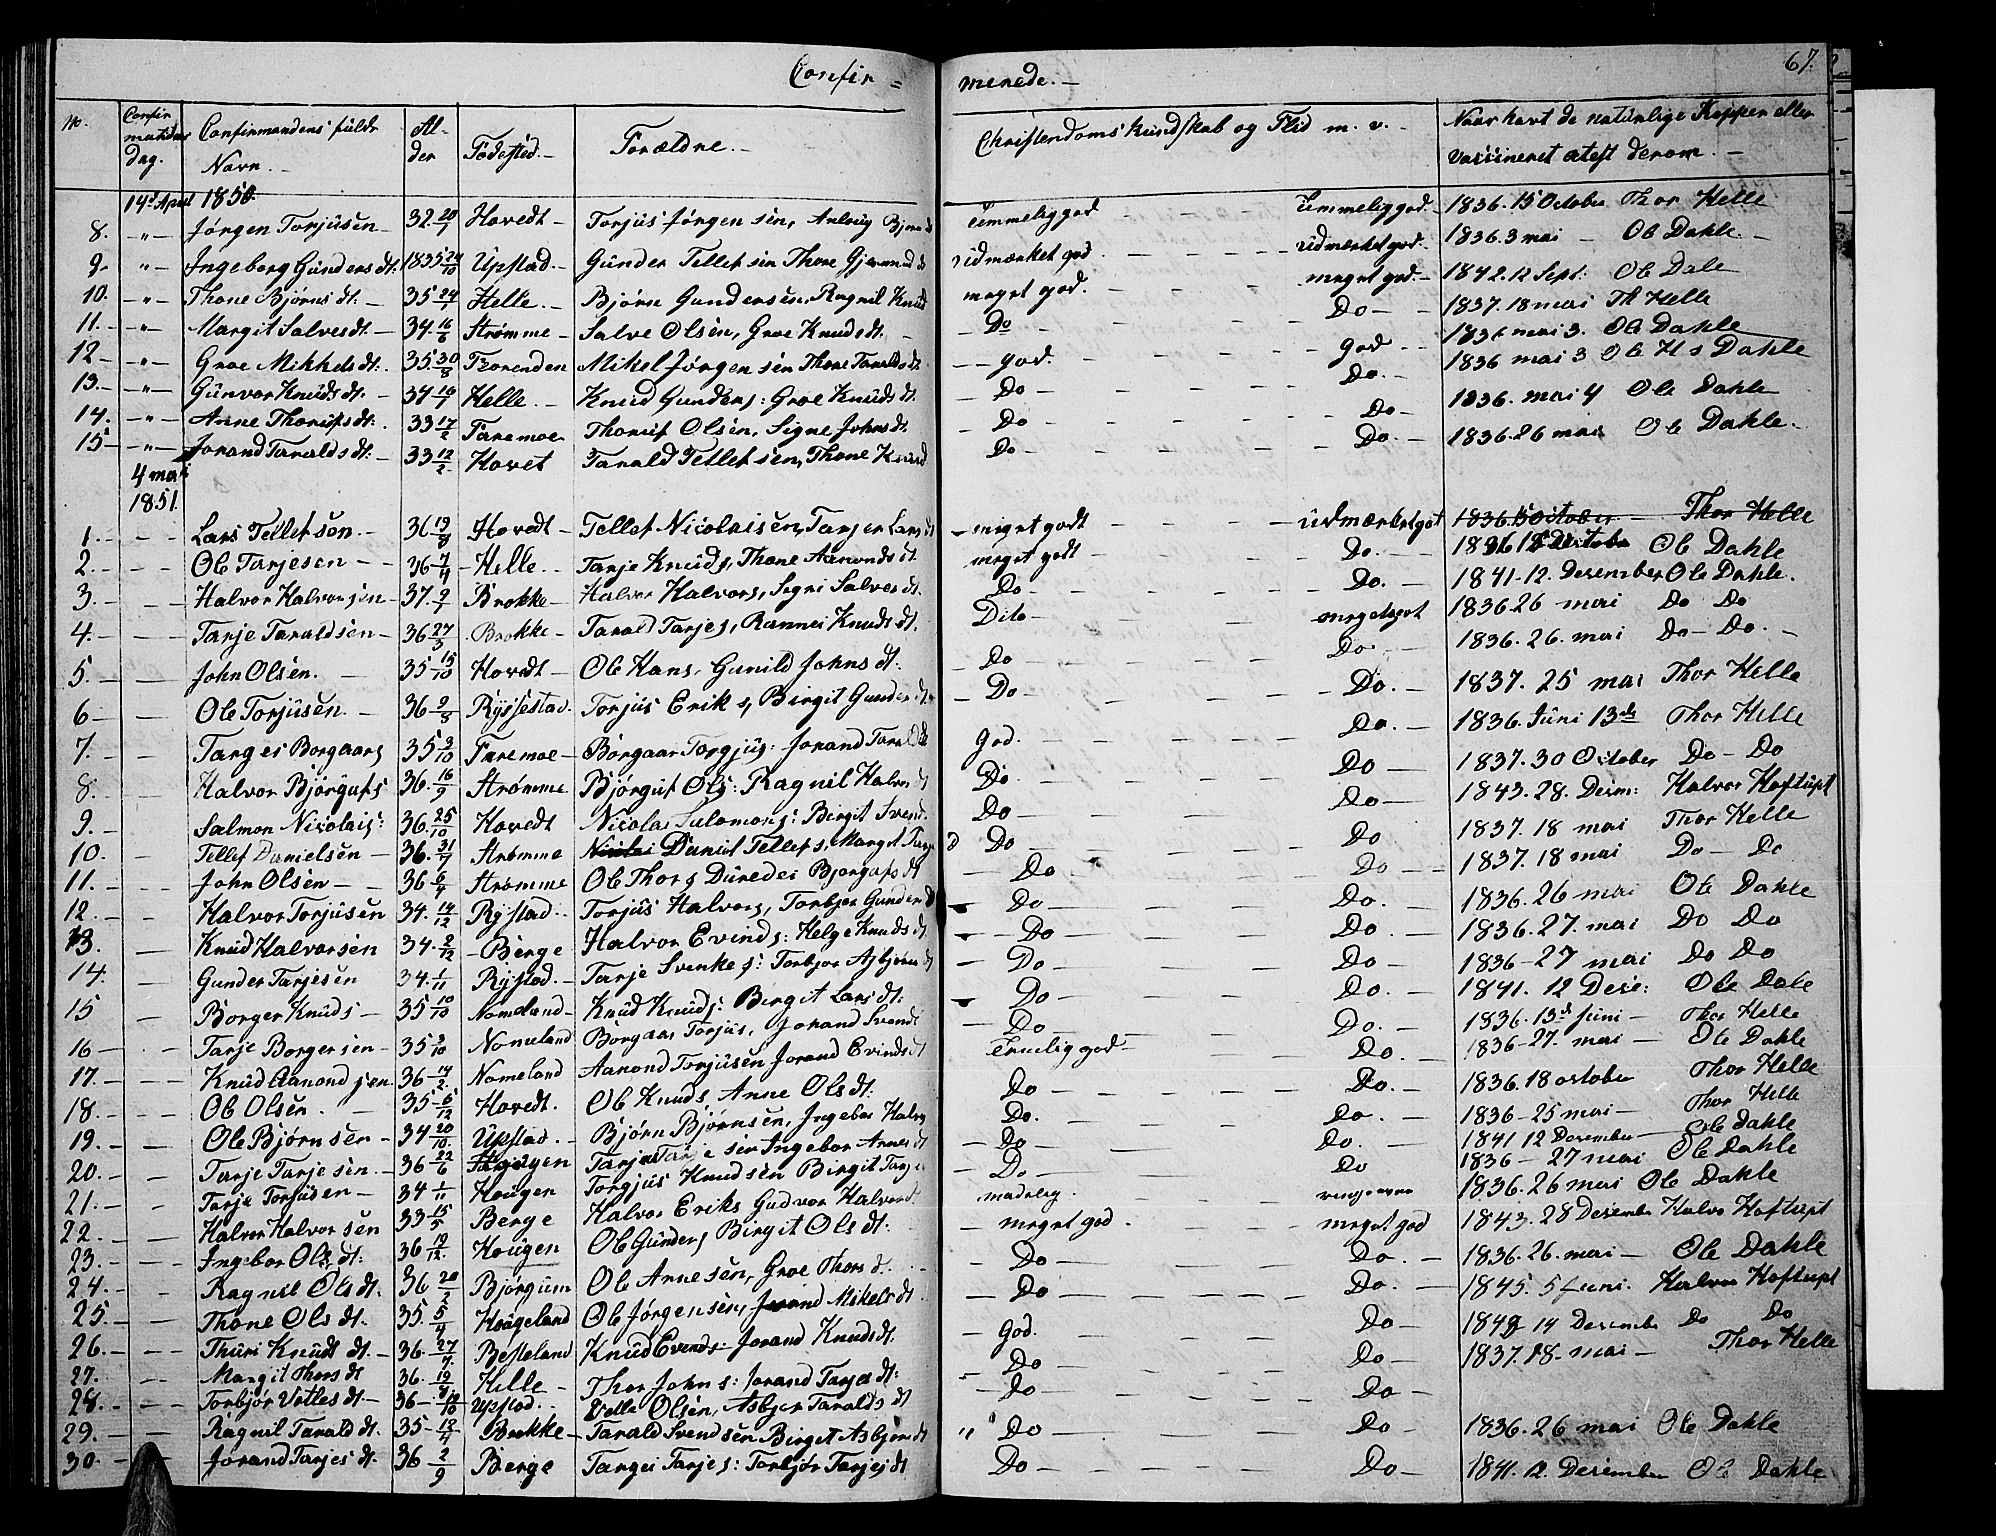 Confir = menede. — 67.
No. Confirmations dag. Confirmandens fulde Navn. — Alder Fødested. — Forældre. — Christendoms kundskab og Flid m. v. — Naar havt de naturlige Kopper eller vaccineret attest derom. —
14de April 1850.
8. — " — Jørgen Torjusen — 32. 20/7 Hovedt — Torjus Jørgensen, Anlaug Bjørns dt temmelig god — — — temmelig god. — 1836. 15 October Thor Helle
9. — " — Ingeborg Gunders dt: 1835 24/10 Upstad. — Gunder Tellefsen Thone Gjermunds dt udmærket god — — — udmærket god. — 1836. 3 mai — Ole Dahle. —
10. — " — Thone Bjørns dt. — 35 24/7 Helle. — Bjørn Gundersen, Ragnil Knuds meget god. — — — meget god. — 1842. 12 Sept: Ole Dale
11. — " — Margit Salves dt. — 34. 16/6 Strømme — Salve Olsen, Groe Knuds dt. — Do — — — Do — 1837. 18 mai Th Helle
12 — " — Groe Mikkels dt: 35 30/8 Mikel Jørgensen Thone Taralds dt — god. — — — god — 1836 mai 3. Ole Dahle
13. — " — Gunvor Knuds dt. — 34 16/7 Helle. — Knud Gunders: Groe Knuds dt. — Do — — — Do. — 1836 mai 3 Ole Hs Dahle
14. — " — Anne Thorufs dt: 33 17/2 Faremoe Thoruf Olsen, Signe Johns dt. — Do — — — Do — 1836. mai 4 Ole Dahle
15 — " — Jorand Taralds dt — 33 12/2 Hovet Tarald Tellefsen, Thone Knuds Do — — — Do. — 1836. 26 mai Ole Dahle. —
4 mai 1851.
1. — — Lars Tellefsen. — 36 13/8 Hovedt — Tellef Nicolaisen, Tarjer Lars dt — meget godt — — — udmærket got 1836. 15 October — Thor Helle
2. — — Ole Tarjesen — 36 7/4 Helle. — Tarje Knuds, Thone Aamunds dt. meget godt — — — Do. — 1836 October Ole Dahle
3. — — Halvor Halvorsen — 37. 2/1 Brokke — Halvor Halvors, Segni Salves dt. — Do — — — Do. — 1841. 12. Desember Ole Dahle.
4. — — Tarje Taraldsen — 36 27/3 Brokke — Tarald Tarjes, Rannei Knuds dt. Dito — — — meget got 1836 26 mai Do Do
5. — — John Olsen. — 35 15/10 Hovedt — Ole Hans, Gunild Johns dt: — Do — — — Do — 1836. 26. mai Do — Do. —
6 — — Ole Torjusen. — 36 2/8 Ryssestad. Torjus Eriks, Birgit Gunders dt — Do — — — Do. — 1837. 25 mai Thor Helle
7. — — Targes Borgaars 35 3/10 Faremoe — Borgaar Torgjus: Jorand Taralds god. — — — Do. — 1836. Juni 13de Thor Helle
8. — Halvor Bjørgufs 36. 16/9 Strømme Bjørguf Ols: Ragnil Halvors dt Do. — — — Do — 1837. 30 October Do — Do
9. — Salmon Nicolais: 36. 25/10 Hovedt Nicolai Salomons: Birgit Svends Do — — — Do — 1843. 28. Desm: Halvor Hoftupt
10. — Tellef Danielsen — 36. 31/7 Strømme Daniel Tellefs, Margit Tarjes Do — — — Do 1837. 18 mai Thor Helle
11. — John Olsen — 36 6/4 Strømme Ole Thors Bjorgufs dt — Do — — — Do — 1837. 18 mai Do — Do
12. — Halvor Torjusen 34. 14/12 Rystad. Torjus Halvors, Torbjør Gunders — Do — — — Do. — 1836. 26 mai Ole Dahle
13. — Knud Halvorsen 34. 2/12 — Berge Halvor Evinds: Helge Knuds dt — Do — — — Do. — 1836. 27. mai Do Do
14. — Gunder Tarjesen 34. 1/11 Rystad. — Tarje Svenkes: Torbjor Asbjørns dt — Do — — — Do — 1836 — 27 mai Do Do
15 — Borger Knuds — 35 10/10 Nomeland — Knud Knuds: Birgit Lars dt: — Do — — — Do. — 1841. 12 Dese: Ole Dale
16 — Tarje Borgersen — 35 3/10 Nomeland Borgaar Torjus, Jorand Svends — Do — — — Do. — 1836. 13de Juni — Thor Helle
17. — Knud Aanondsen 36 14/2. Nomeland Aanond Torjusen Jorand Evinds dt Temelig god — — — Do. — 1836 — 27. mai — Ole Dahle
18. — Ole Olsen. 35 5/12 Hovedt. Ole Knuds Anne Ols dt: Do — — — Do. — 1836. 18 october Thor Helle
19. — Ole Bjørnsen — 34 20/10 Upstad. — Bjørn Bjørnsen, Ingebor Halvors Do. — — — Do. — 1836 — 25 mai — Thor Helle
20. — Tarje Tarjesen. — 36 22/6 Haugen Tarje Tarjesen Ingebor Annes dt — Do — — — Do. — 1841 12 Desember — Ole Dahle
21. — Tarje Torjusen — 34 1/11 Hougen Torgjus Knudsen Birgit Tarjes — Do — — — Do 1836 — 27 mai Ole Dahle
22. — Halvor Halvorsen 33 15/5 Berge Halvor Eriks Gudvor Halvors dt maadelig. — — — 1836. 26 mai Ole Dahle
23. — Ingebor Ols dt: 36 19/12. Hougen Ole Gunders Birgit Ols dt: — meget god. — — — meget god 1843. 28 Desember Halvo Hoftupt
24. — Ragnil Ols dt. 36 20/2 Bjørgum Ole Annesen, Groe Thors dt. — Do — — — Do. — 1836. 26. mai — Ole Dahle
25 — Thone Ols dt. 35. 5/4 Hougeland Ole Jørgensen, Jorand Mikels dt — Do — — — Do. — 1845. 5 Juni. Halvor Hoftupt
26. — Thuri Knuds dt — 36. 27/7. Besteland Knud Evinds: Jorand Knuds dt. — God. — — — Do — 1849 14 Desember Do Do
27. — Margit Thors dt 36. 19/8 Helle — Thor Johns: Jorand Tarjes dt: Do — — — Do — 1837. 18. mai — Thor Helle
28. — Torbjør Vetles dt — 36 — 10/10 Upstad. Vetle Olsen, Asbjør Taralds dt — Do — — — Do —
29. — Ragnil Tarald dt. 35 — 13/4 Brokke — Tarald Svendsen Birget Asbjørns dt " Do — — — Do — 1836. 26 mai Ole Dahle
30. — Jorand Tarjes dt. 36 2/9 Berge Targei Tarjes: Torbjør Tarjes dt Do — — — Do — 1841. 12. Desember Ole Dahle